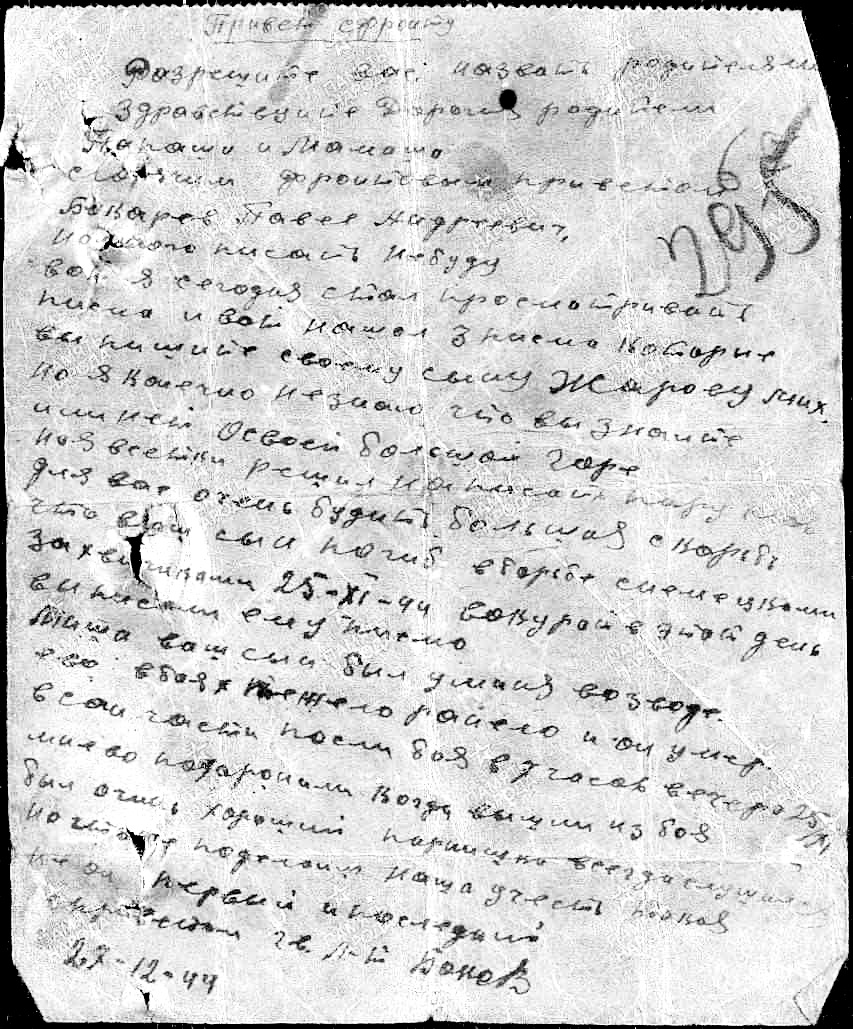 Привет с фронту
Разрешите вас назвать родителями
Здравствуите Дорогия родители
Папаша и Мамаша
с горячим фронтовым приветом
Павел Андреевич,
Но много писать небуду
вот я сегодня стал просматривать
писма и вот нашол 3 писма которые
вы пишите своему сыну Жарову Мих.
но я конечно незнаю что вы знаите
или нет Освоей большой горе
но я все таки решил написать пару
для вас очень будить большая скорбь
что ваш сын погиб вборьбе снемецкими
захвчиками 25-XI-44 в этот день
вы писали ему писмо
Миша ваш сын был уменя возводе.
его вбоях тежело ранело и он умер.
в сан части посли боя в 7 часов вечера 25/XI
мы ево похаронили когда вышли из боя
был очинь хороший парнишка всегда слушился
но что же поделаим наша учесть такая
не он первый и последний
с приветом гв. Л-т
27-12-44
295